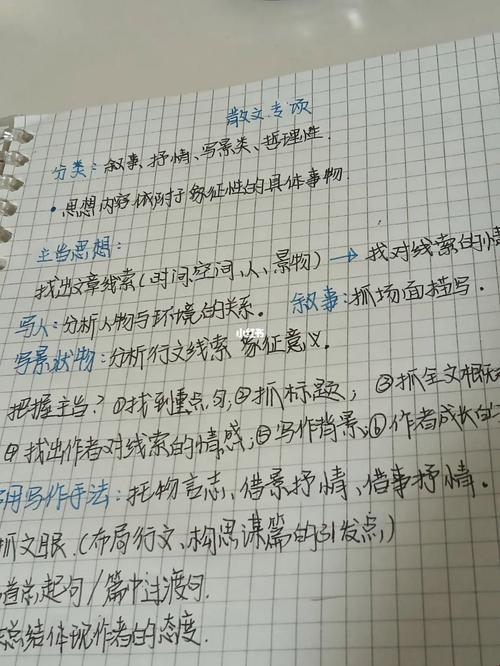 散文专项
分类：叙事、抒情、写景类、哲理性.
• 思想内容依附于象征性的具体事物.
主旨思想：
找出文章线索(时间、空间、人、景物) → 找对线索的情
写人：分析人物与环境的关系。 叙事：抓场面描写.
小红书
写景状物：分析行文线索 象征意义.
把握主旨？①找到重点句;②抓标题; ③抓全文
④找出作者对线索的情感;⑤写作背景;⑥作者成长的
用写作手法：托物言志、借景抒情、借事抒情.
抓文眼.(布局行文、构思谋篇的引发点)
首总起句/篇中过渡句.
总结体现作者的态度.